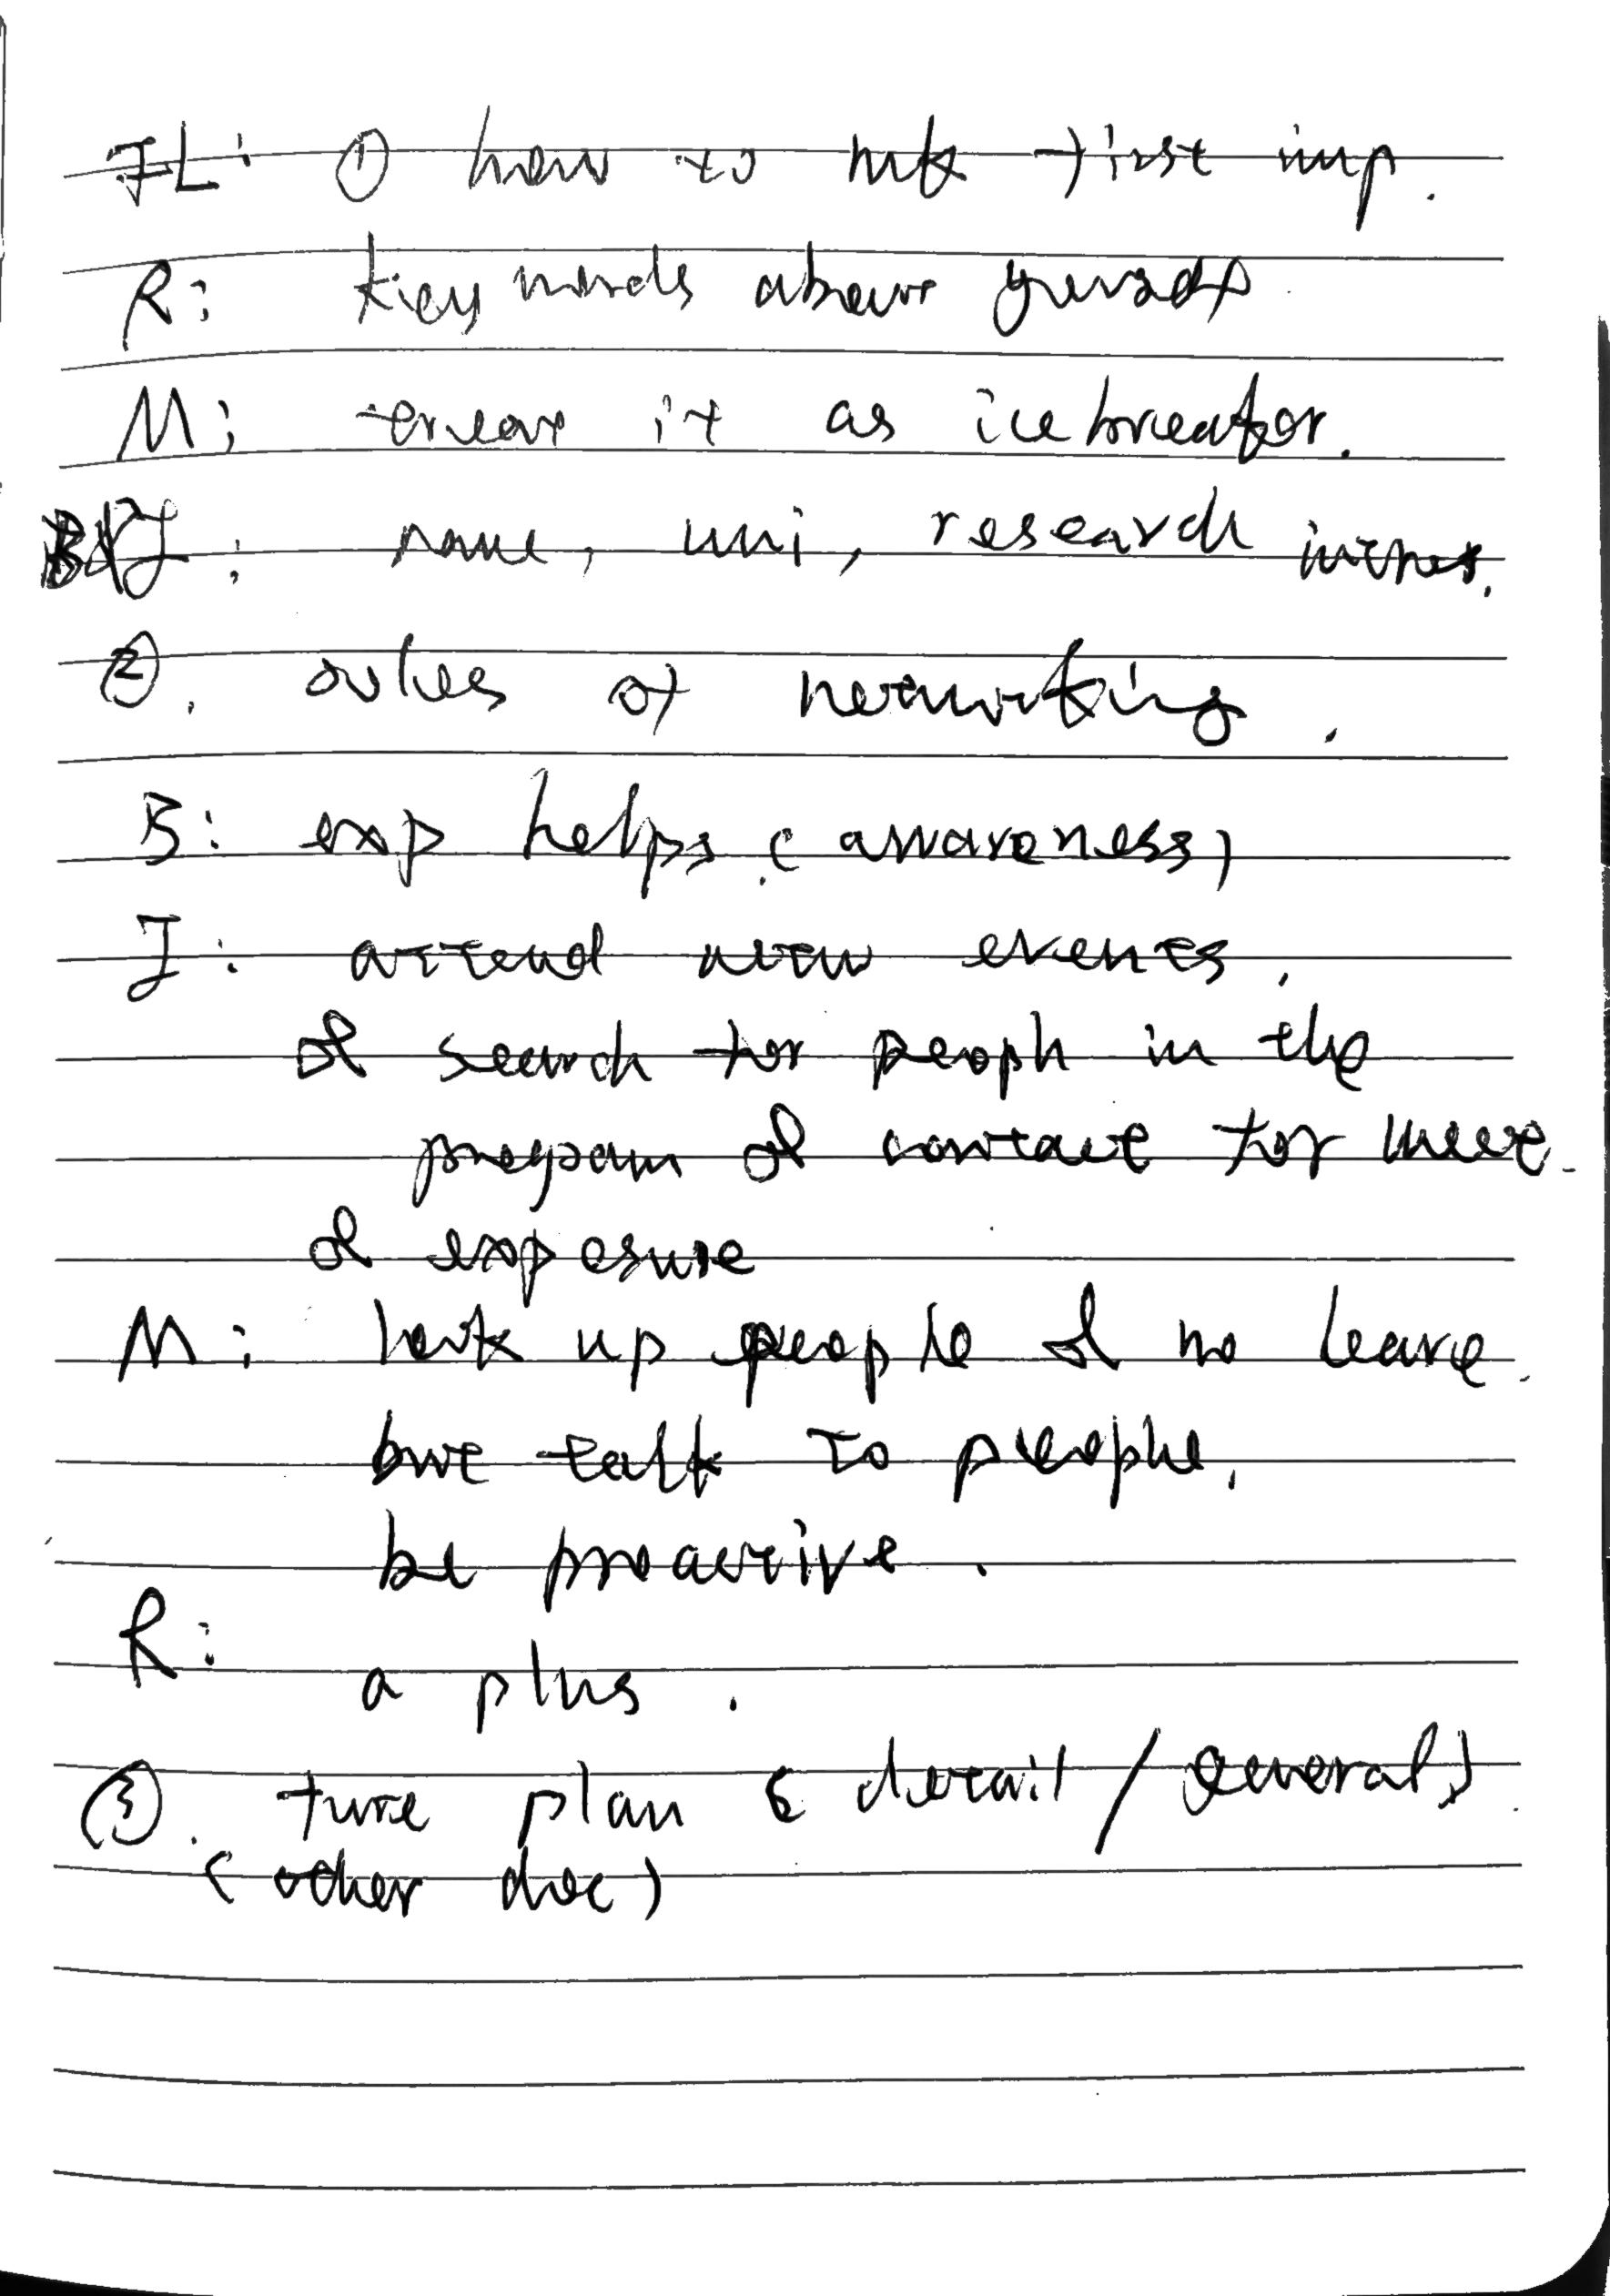 JL: ① how to mk first imp.
R: key words about yourself
M: treat it as icebreaker.
J: name, uni, research interest.
②. rules of networking.
B: exp helps (awareness)
J: attend netw events.
& search for people in the
program & contact for meet.
& exposure
M: look up people & no leave.
but talk to people.
be proactive.
R: a plus.
③. plan (detail/general)
(other doc)